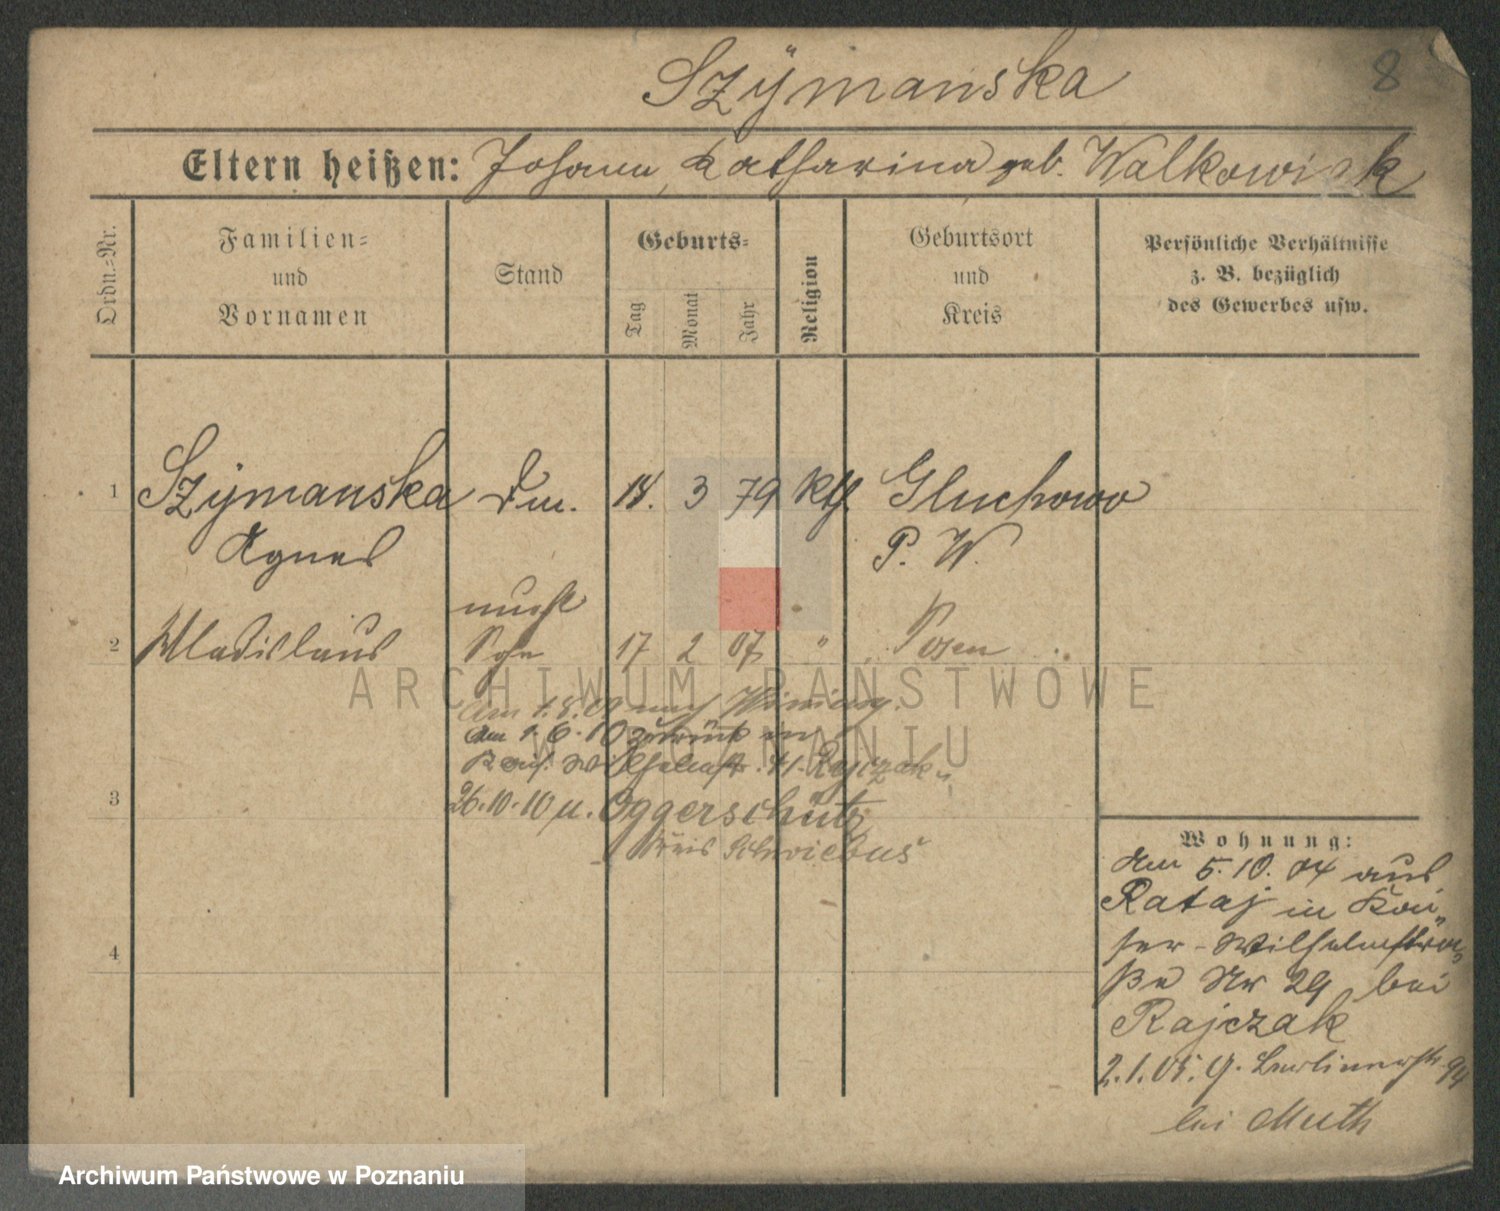 Szÿmanska
8
Eltern heißen: Johann, Katharina geb. Walkowiak
Ordn.-Nr.
Familien-
und
Vornamen
Stand
Geburts-
Tag
Monat
Jahr
Religion
Geburtsort
und
Kreis
Persönliche Verhältnisse
z. B. bezüglich
des Gewerbes usw.
1 Szymanska 18. 3 79 kth Gluchowo
Agnes P. W.
unehl
2 Wladislaus Sohn 17 2 07 " Posen
am 1.8. nach
am 1.6.10 zurück in
Kais. Wilhelmstr. 41. Rajczak
3 26.10.10 u. Oggerschütz
Kreis Schwiebus
4
Wohnung:
Am 5.10.04 aus
Rataj in Kai„
ser-Wilhelmstra„
ße Nr 29 bei
Rajczak
2.1.05. G. Berlinerstr 94
bei Muth
ARCHIWUM PAŃSTWOWE
W POZNANIU
Archiwum Państwowe w Poznaniu